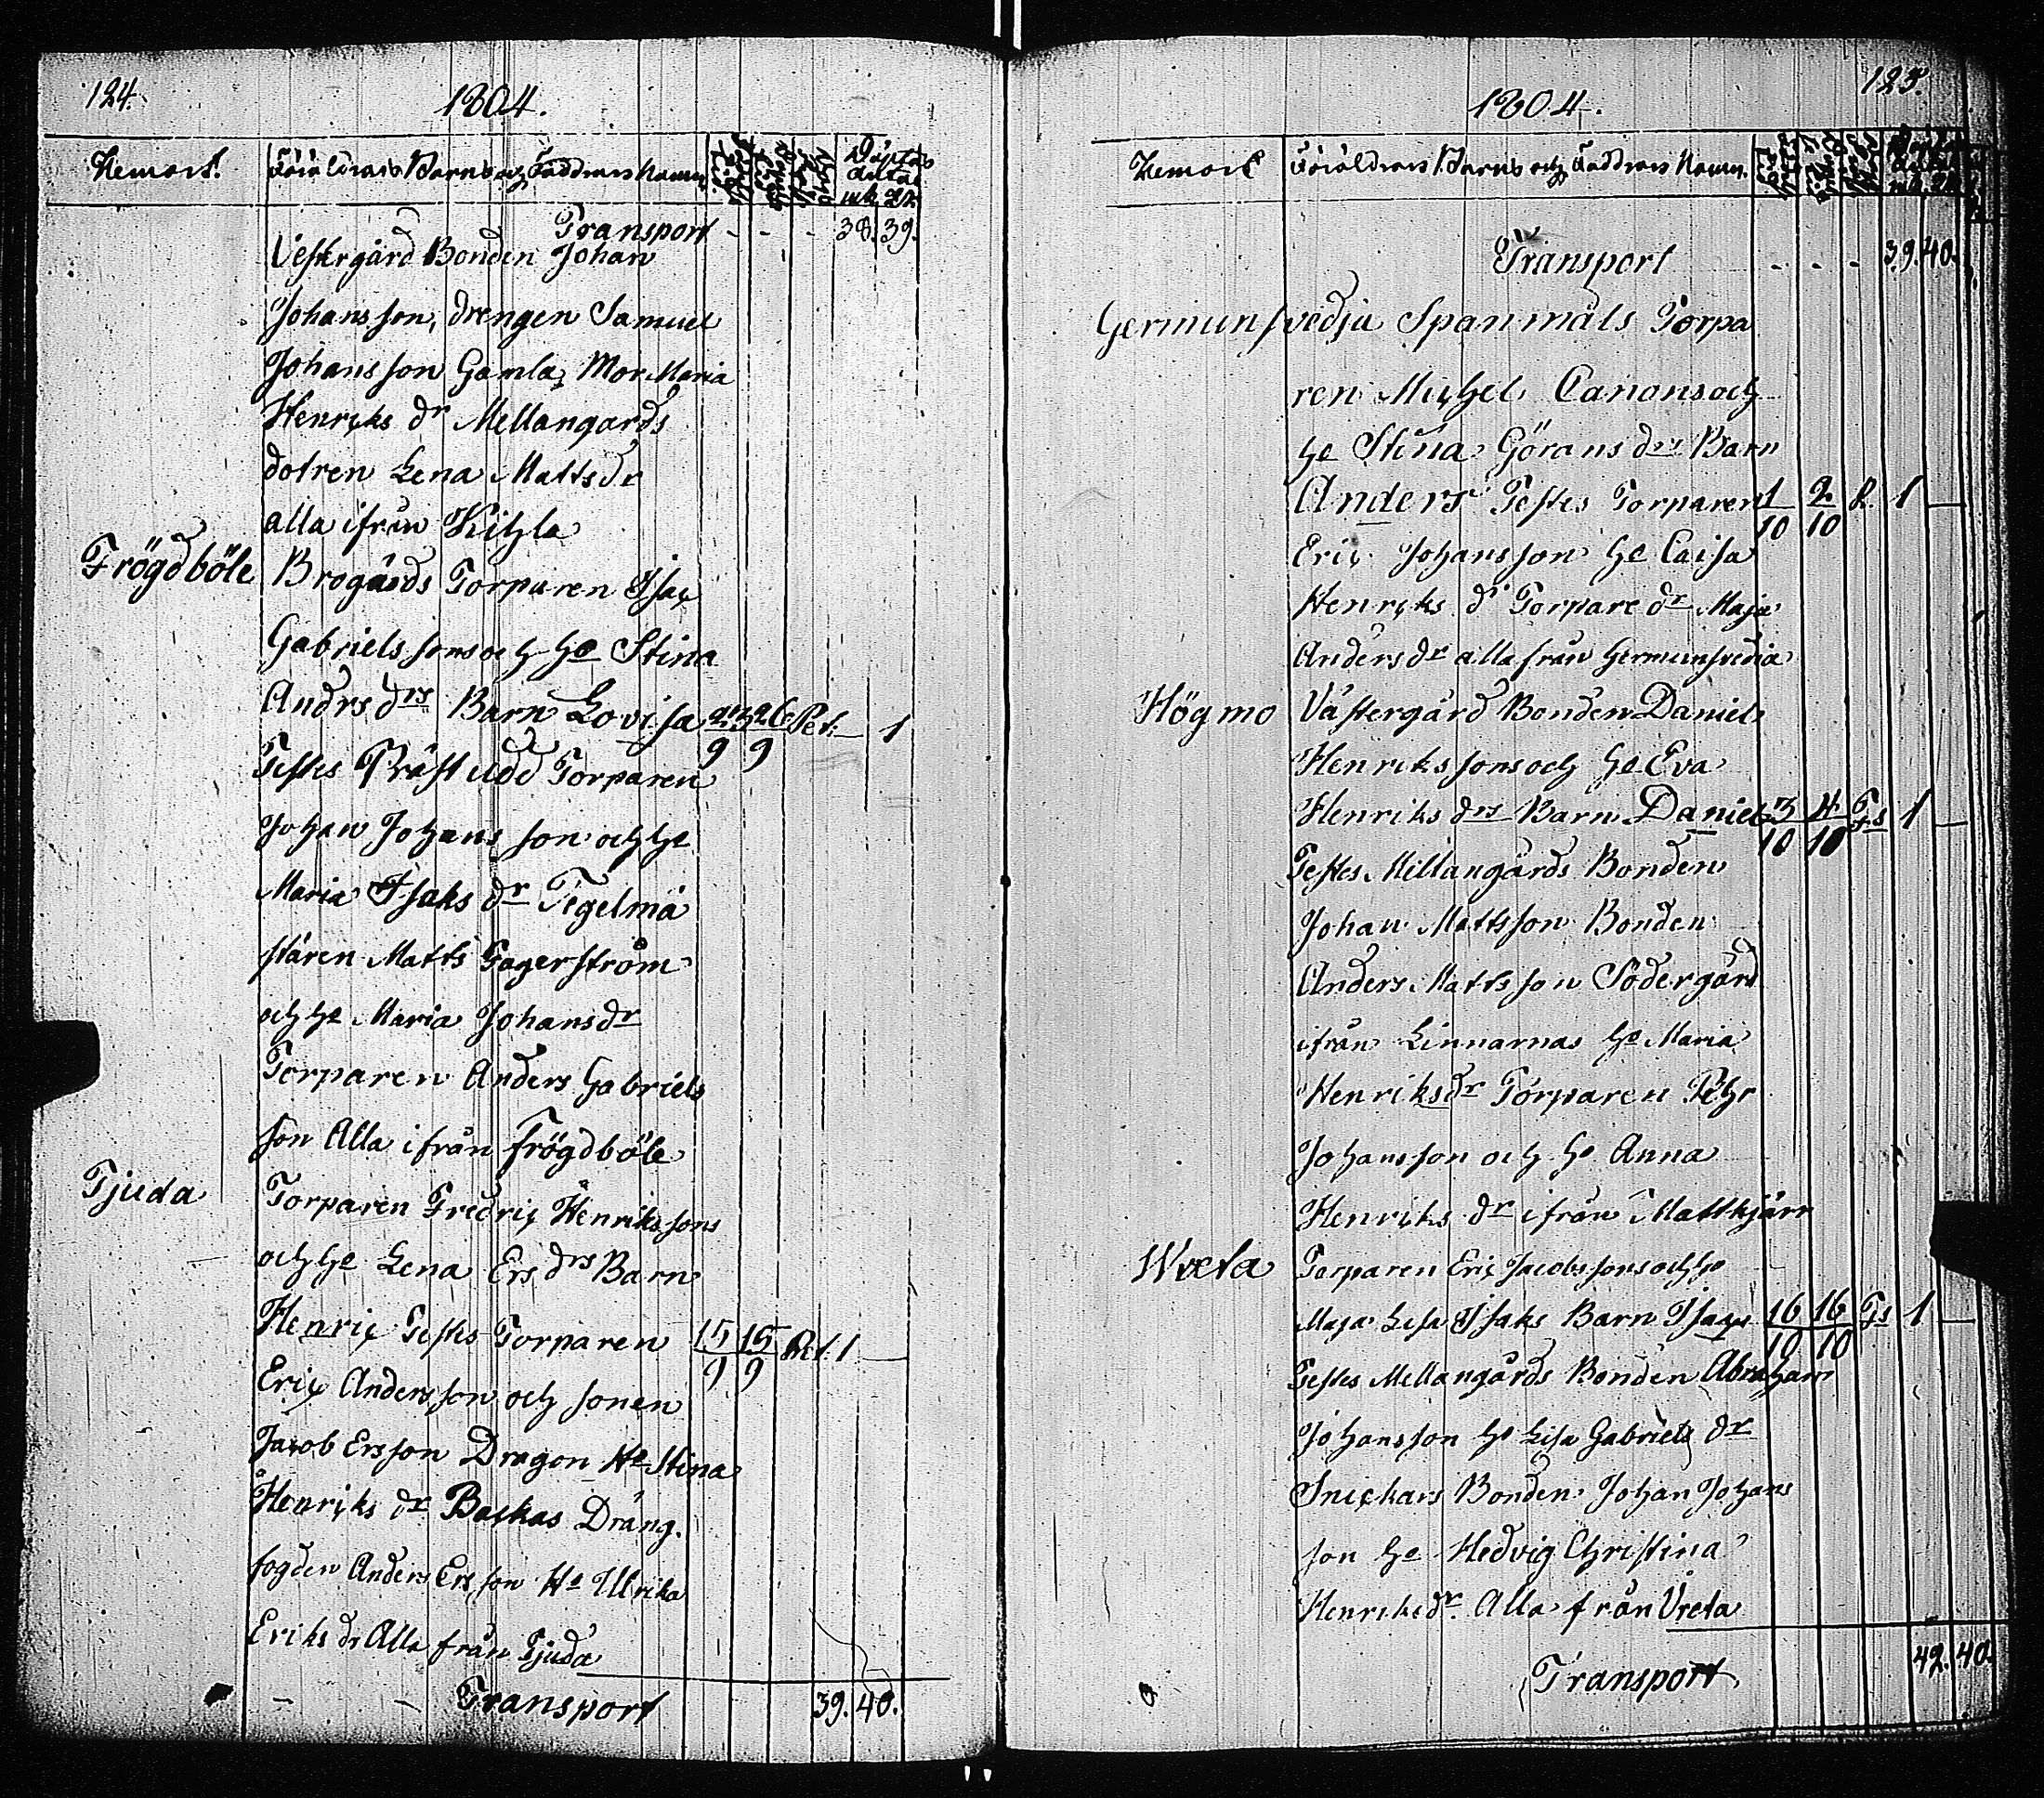 124.
1804.
Hemort. Föräldrars Barns och Faddrars Namn
Döptas Antal
mk. qk.
Transport - - - 38. 39.
Vestergård Bonden Johan
Johansson, drengen Samuel
Johansson Gamla Mor Maria
Henriks dr Mellangårds
dotren Lena Matts dr
alla ifrån Kihla
Frögdböle Brogårds Torparen Isac
Gabrielssons och he Stina
Andrs drs Barn Lovisa 23/9 26/9 Pet. — 1
Testes Prästudd Torparen
Johan Johansson och he
Maria Isaks dr Tegelmä
staren Matts Gagerström
och he Maria Johans dr
Torparen Anders Gabriels
son Alla ifrån Frögdböle
Tjuda Torparen Fredric Henrikssons
och he Lena Ers drs Barn
Henric Testes Torparen 15/9 15/9 Pet. 1 —
Eric Andersson och sonen
Jacob Ersson Dragon He Stina
Henriks dr Backas Dräng.
fogden Anders Ersson He Ulrika
Eriks dr Alla från Tjuda
- - Transport 39. 40.
125.
1804.
Hemort Föräldrars Barns och Faddrars Namn.
Transport - - - 39. 40.
Germunsvedja Spanmåls Torpa
ren Michel Canons och
he Stina Görans drs Barn
Anders Testes Torparen 1/10 2/10 R. 1 —
Eric Johansson he Caisa
Henriks dr Torpare dr Maja
Anders dr alla från Germunsvedia
Högmo Västergård Bonden Daniel
Henrikssons och he Eva
Henriks drs Barn Daniel 3/10 4/10 Fs 1 —
Testes Mellangårds Bonden
Johan Mattsson Bonden
Anders Mattsson Södergård
ifrån Linnarnäs he Maria
Henriks dr Torparen Pehr
Johansson och he Anna
Henriks dr ifrån Mattkjärr
Wreta Torparen Eric Jacobssons och he
Maja Lisa Isaks Barn Isac 16/10 16/10 Fs 1 —
Testes Mellangårds Bonden Abraham
Johansson he Lisa Gabriels dr
Snickars Bonden Johan Johans
son he Hedvig Christina
Henriks dr. Alla från Vreta
Transport 42. 40.